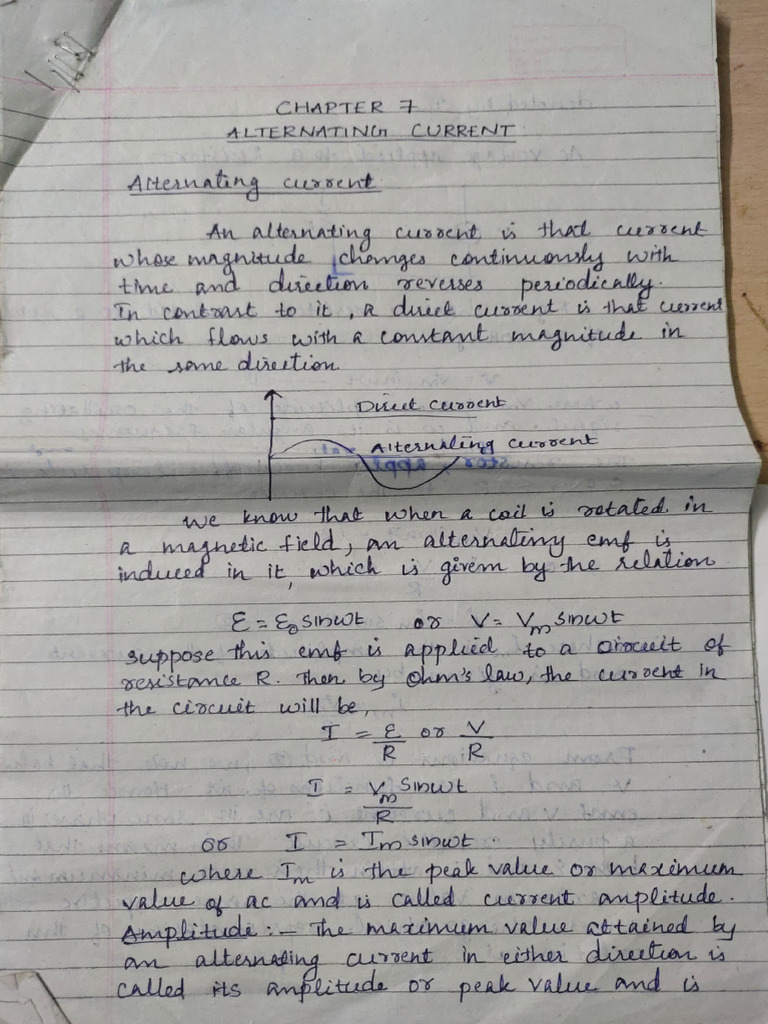 CHAPTER 7
ALTERNATING CURRENT
Alternating current
An alternating current is that current
whose magnitude changes continuously with
time and direction reverses periodically.
In contrast to it, a direct current is that current
which flows with a constant magnitude in
the same direction
Direct current
Alternating current
we know that when a coil is rotated in
a magnetic field, an alternating emf is
induced in it, which is givem by the relation
Ɛ = Ɛ₀ sinwt or V = Vm sinwt
suppose this emf is applied to a circuit of
resistance R. Then by Ohm's law, the current in
the circuit will be,
I = Ɛ/R or V/R
I = Vm sinwt/R
or I = Im sinwt.
where Im is the peak value or maximum
value of ac and is called current amplitude.
Amplitude :- The maximum value attained by
an alternating current in either direction is
called its amplitude or peak value and is